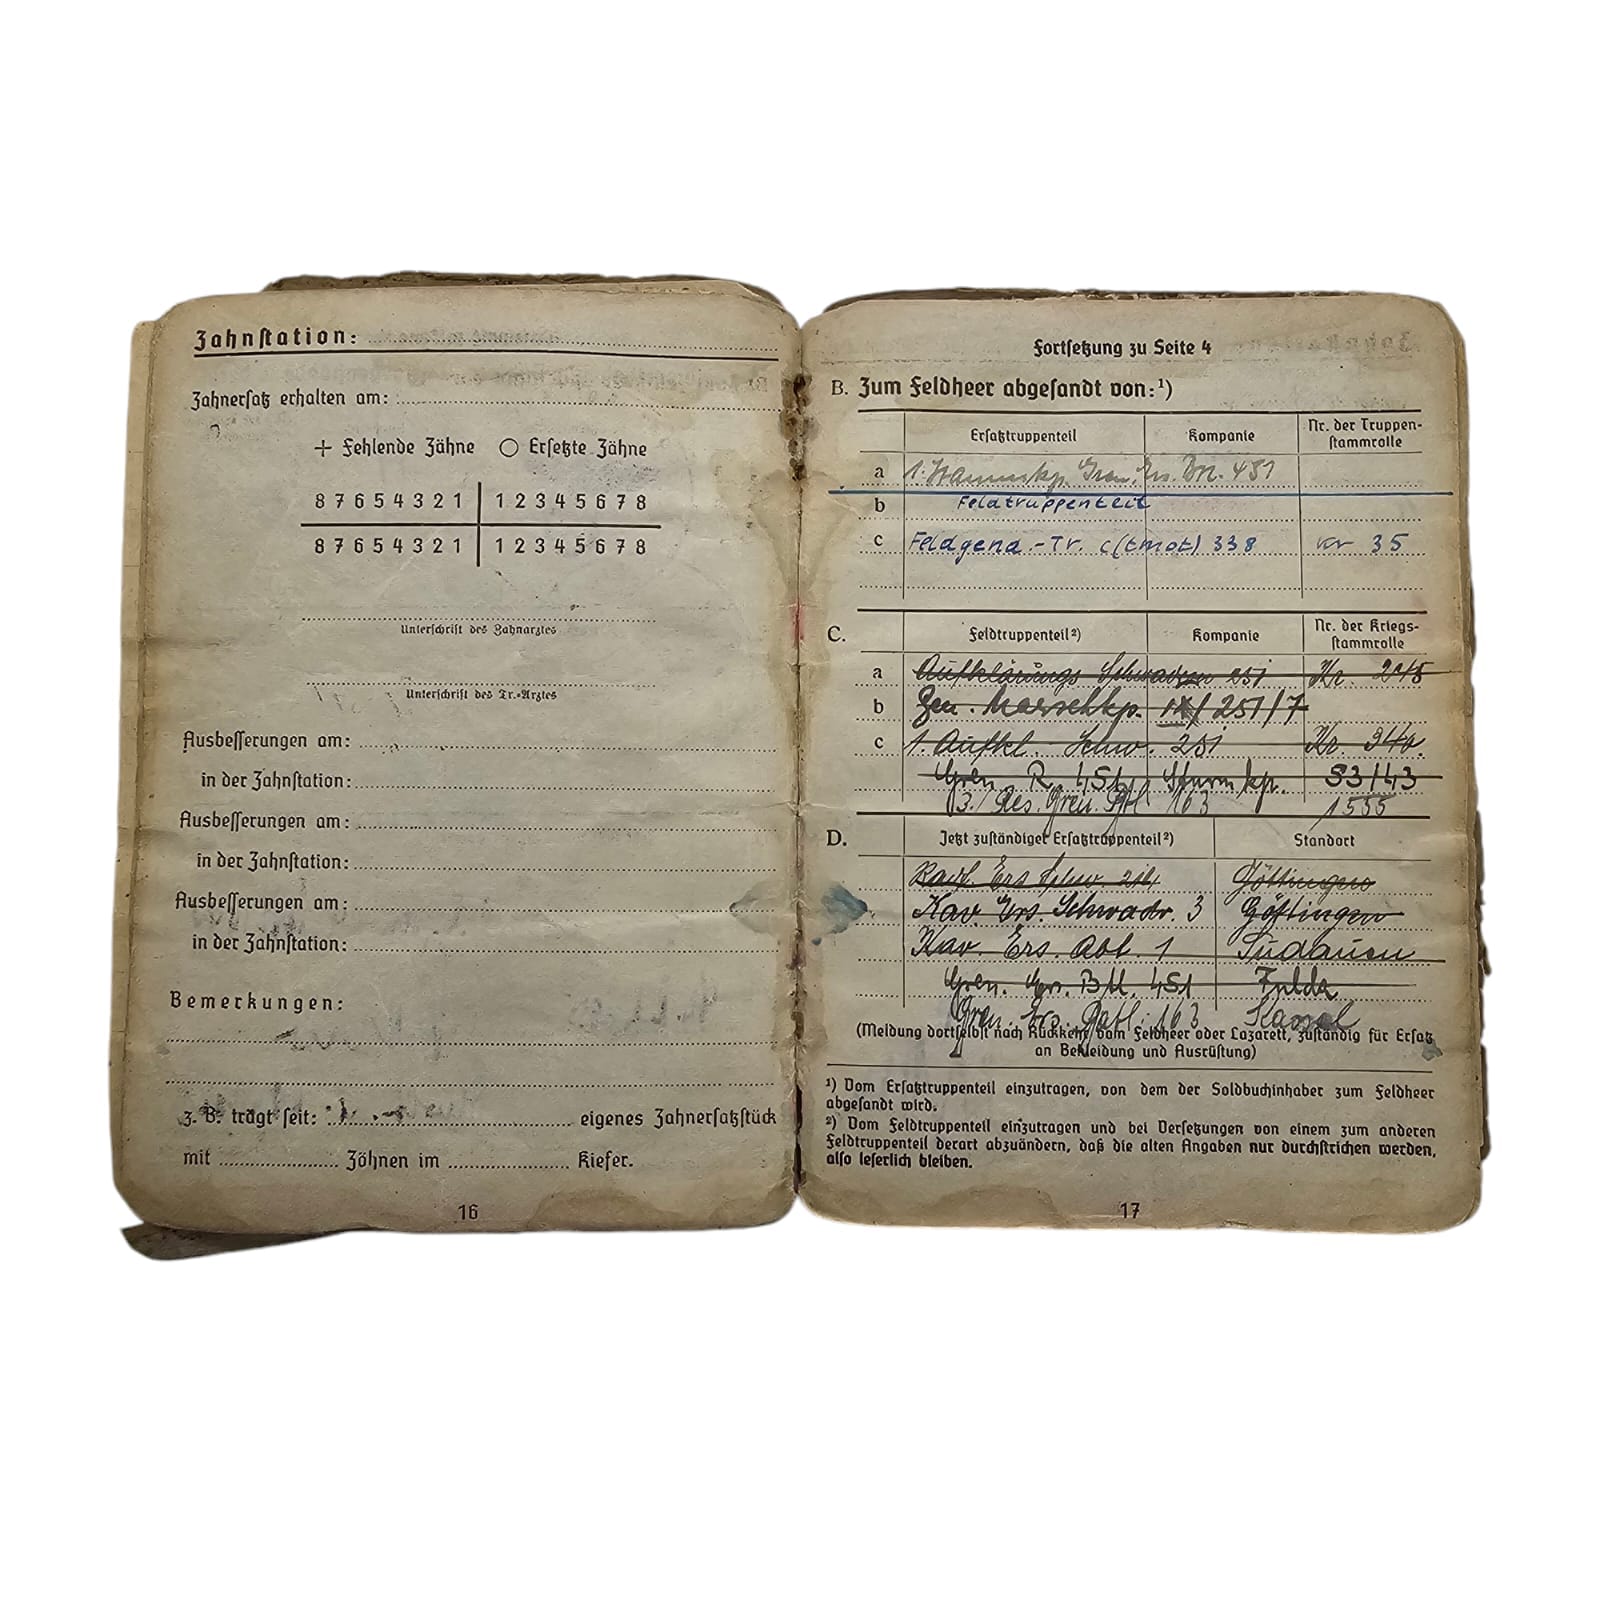 Zahnstation:
Zahnersatz erhalten am:
+ Fehlende Zähne ○ Ersetzte Zähne
8 7 6 5 4 3 2 1 | 1 2 3 4 5 6 7 8
8 7 6 5 4 3 2 1 | 1 2 3 4 5 6 7 8
Unterschrift des Zahnarztes
Unterschrift des Tr.-Arztes
Ausbesserungen am:
in der Zahnstation:
Ausbesserungen am:
in der Zahnstation:
Ausbesserungen am:
in der Zahnstation:
Bemerkungen:
z. B. trägt seit: eigenes Zahnersatzstück
mit Zähnen im Kiefer.
16
Fortsetzung zu Seite 4
B. Zum Feldheer abgesandt von:¹)
Ersatztruppenteil Kompanie Nr. der Truppen-
stammrolle
a Gren. Ers. Btl. 451
b Feldtruppenteil
c Feldgend.-Tr. c (tmot) 338 35
C. Feldtruppenteil²) Kompanie Nr. der Kriegs-
stammrolle
a Aufklärungs Schwadron 251 Nr.
b Gen. Marschkp. 251/7
c 1. Aufkl. Schw. 251 Nr.
Gren. R. 451 Sturmkp. 53/43
3./Res. Gren. Btl 163 1555
D. Jetzt zuständiger Ersatztruppenteil²) Standort
Ers Schw. Göttingen
Kav. Ers. Schwadr. 3 Göttingen
Kav. Ers. Abt. 1 Sudauen
Gren. Ers. Btl. 451 Fulda
Gren. Ers. Batl. 163 Kassel
(Meldung dortselbst nach Rückkehr vom Feldheer oder Lazarett, zuständig für Ersatz
an Bekleidung und Ausrüstung)
¹) Vom Ersatztruppenteil einzutragen, von dem der Soldbuchinhaber zum Feldheer
abgesandt wird.
²) Vom Feldtruppenteil einzutragen und bei Versetzungen von einem zum anderen
Feldtruppenteil derart abzuändern, daß die alten Angaben nur durchstrichen werden,
also leserlich bleiben.
17